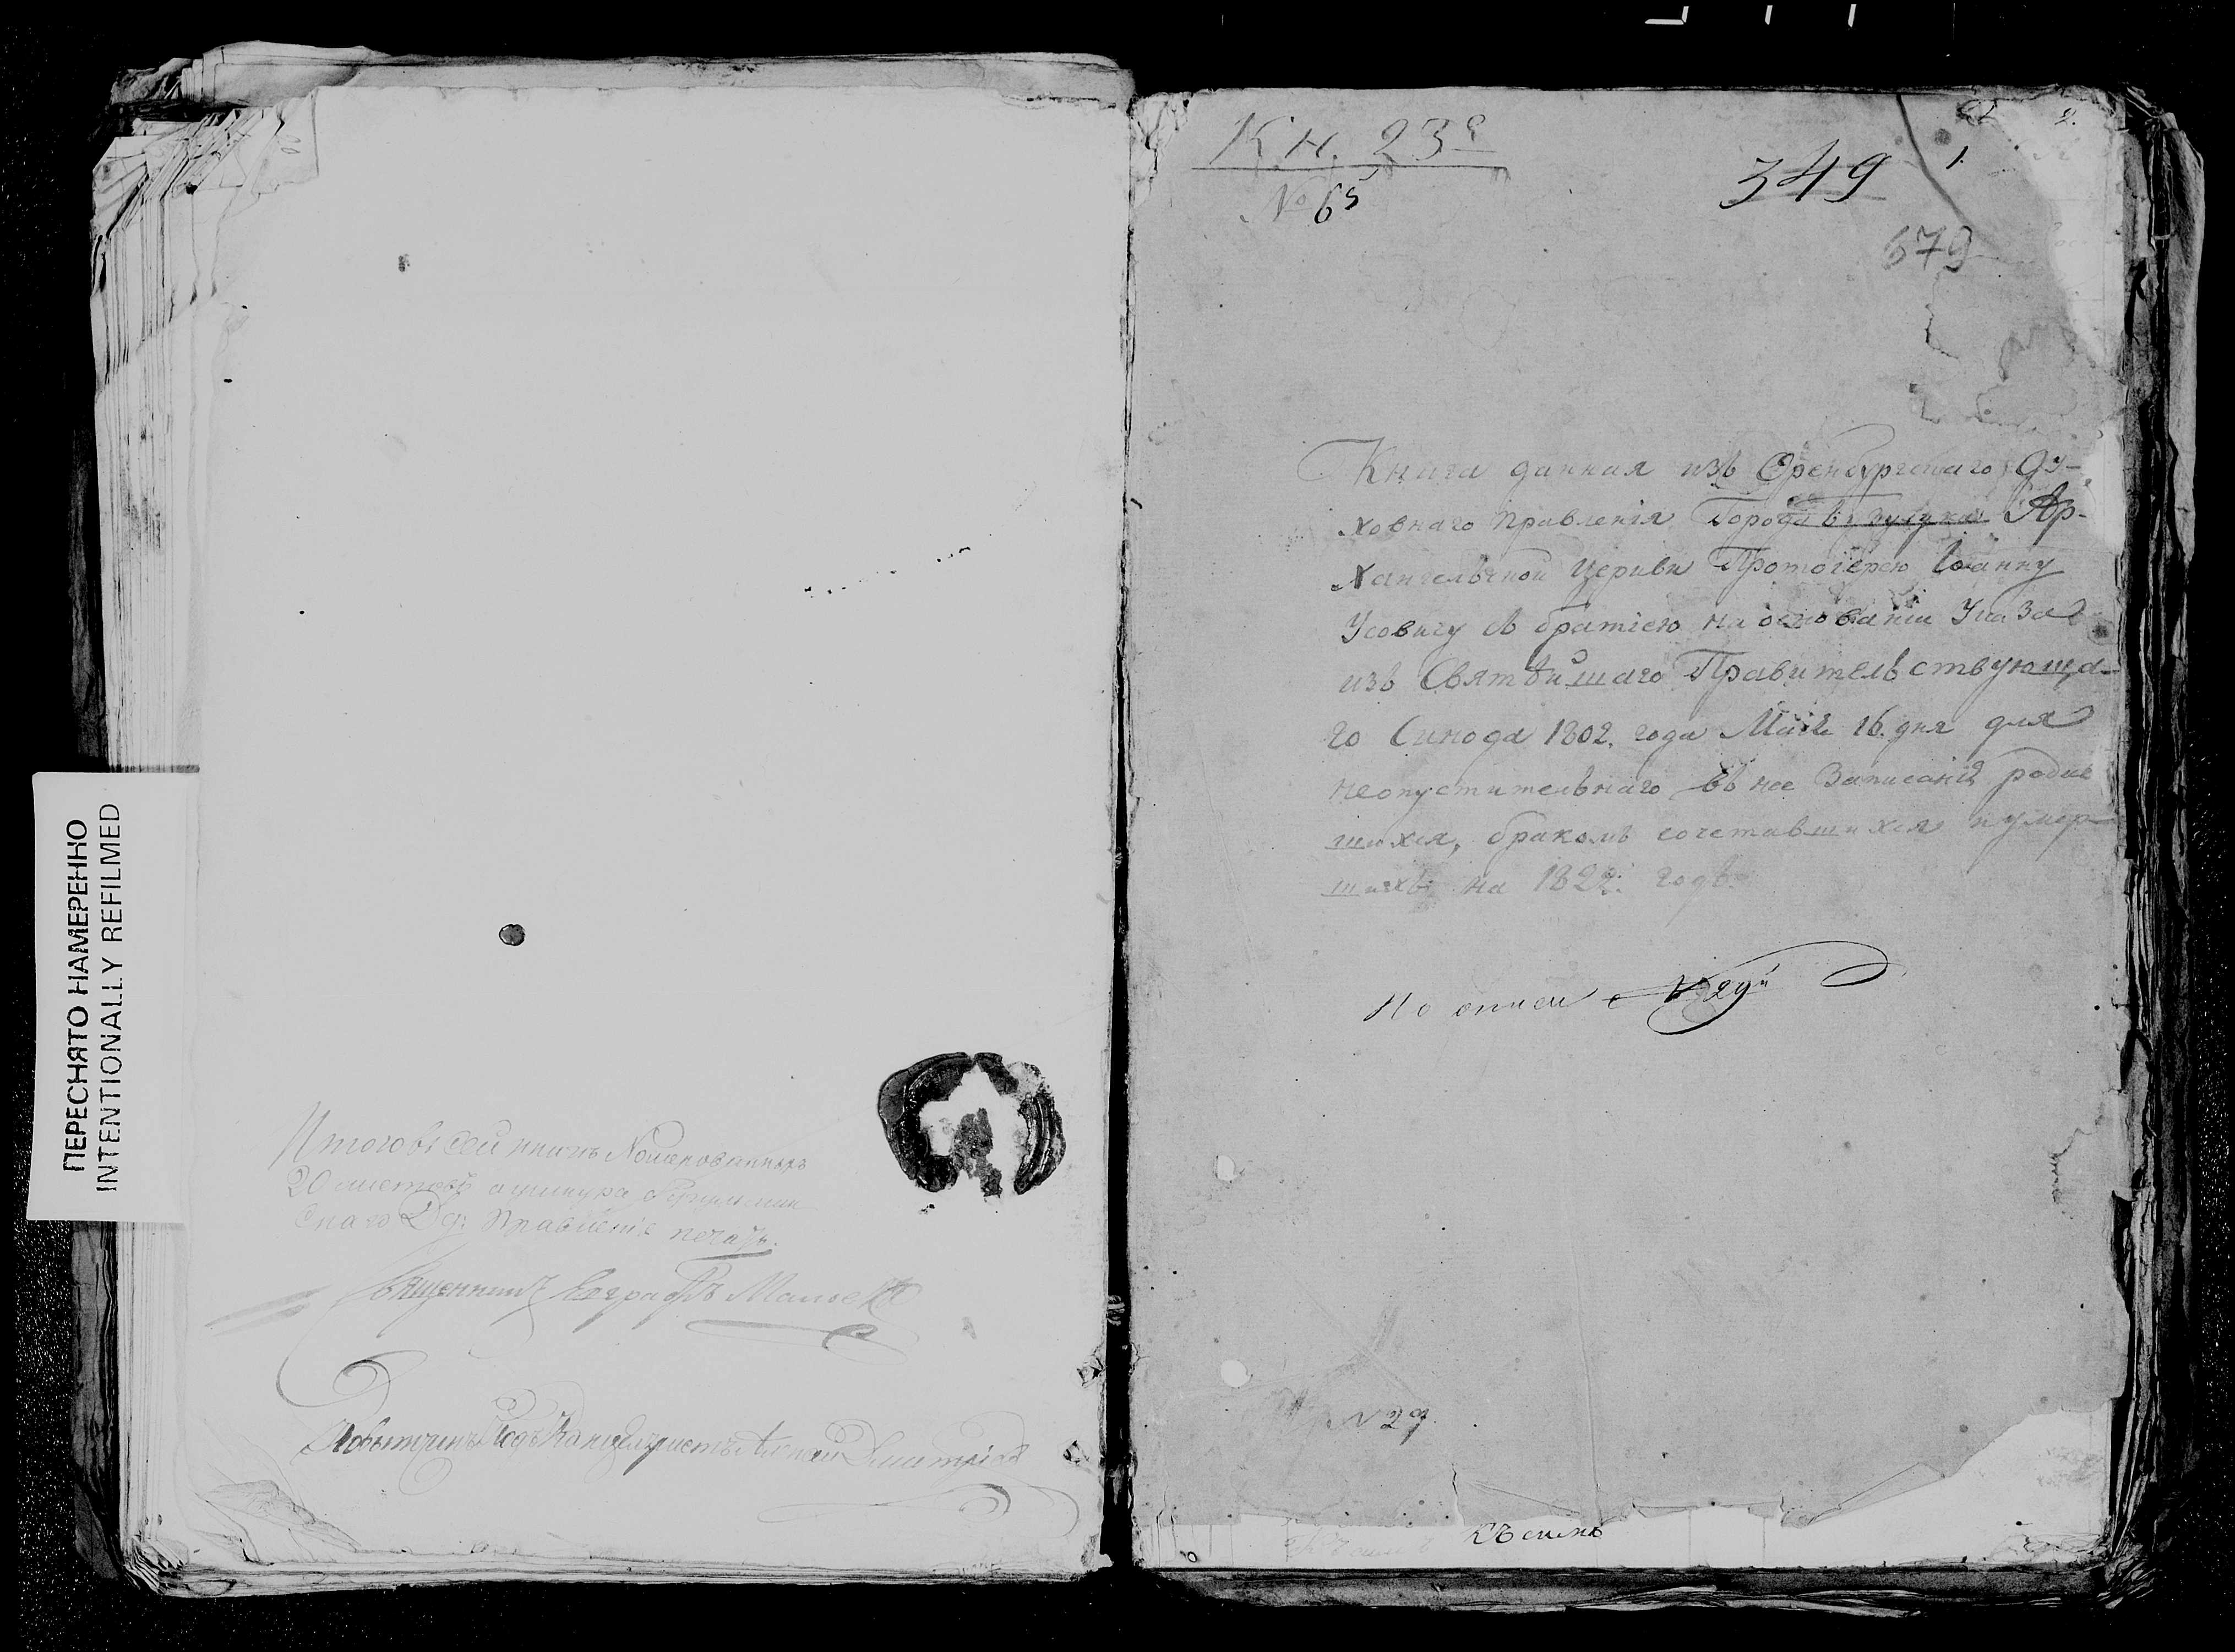 ПЕРЕСНЯТО НАМЕРЕННО
INTENTIONALLY REFILMED
Итого въ сей книгѣ Номерованныхъ
20 листовъ
Правленія печать.
Священникъ Евграфъ
Повытчикъ Подъканцеляристъ Дмитріевъ
Кн. 23
№ 65
349
1.
2.
679
Книга данная изъ Оренбургскаго Ду-
ховнаго Правленія Города Бузулука Ар-
хангельской Церкви Протоіерею Іоанну
Усовичу съ братіею на основаніи Указа
изъ Святѣйшаго Правительствующа-
го Синода 1802. года Маія 16. дня для
неопустительнаго въ нее Записанія родив
шихся, бракомъ сочетавшихся и умер-
шихъ на 1822. годъ.
По описи № 29й
№ 29.
Къ симъ